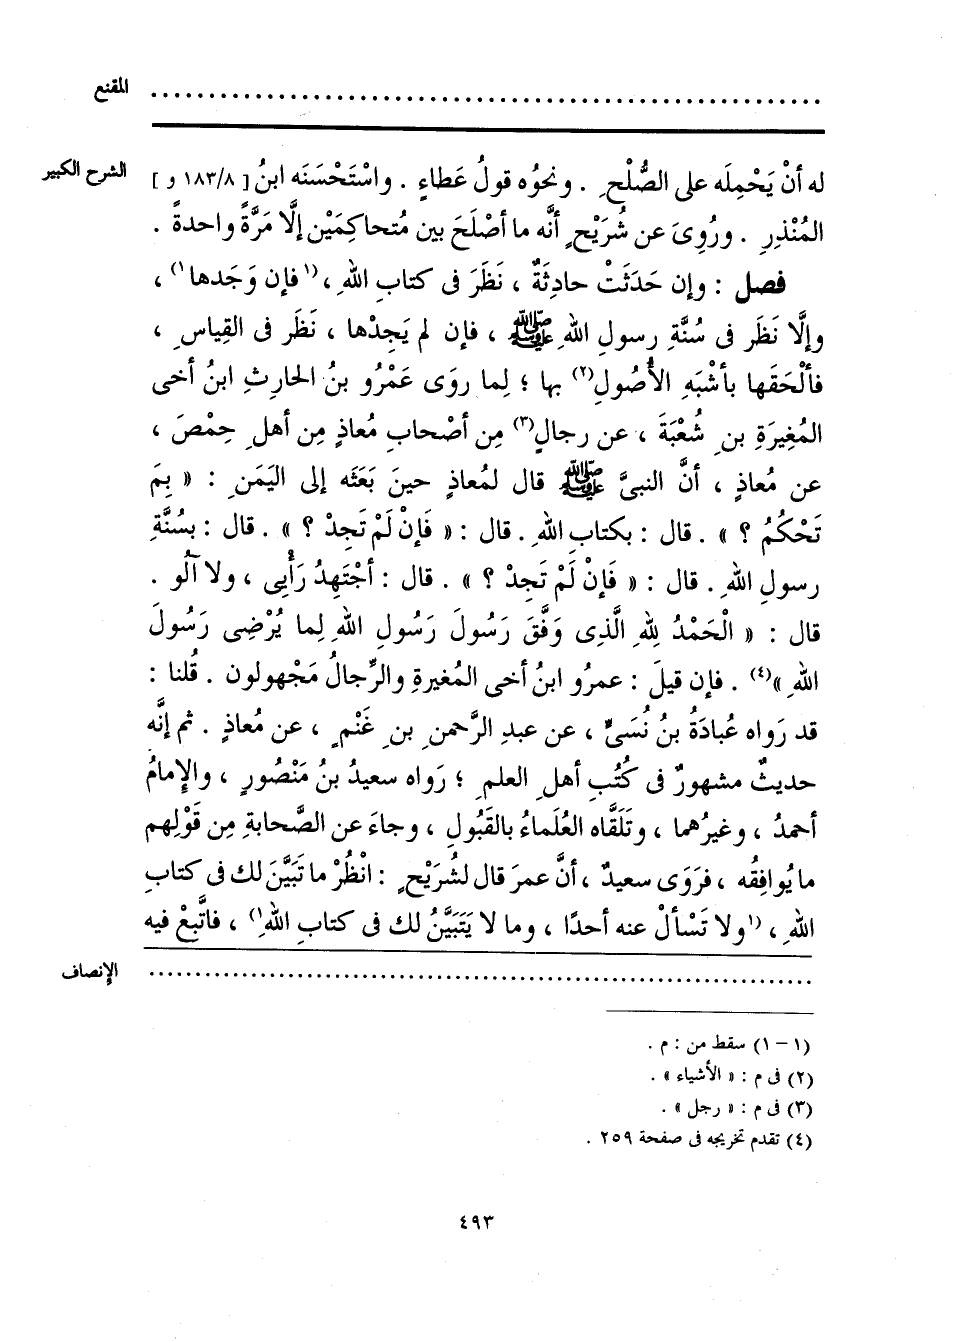 المقنع ......................................................
الشرح الكبير
له أنْ يَحْمِلَه على الصُّلْحِ . ونحوُه قولُ عَطاءٍ . واسْتَحْسَنَه ابنُ [ ٨/١٨٣ و ]
المُنْذِرِ . ورُوِىَ عن شُرَيْحٍ أنَّه ما أصْلَحَ بين مُتحاكِمَيْن إلَّا مَرَّةً واحدةً .
فصل : وإن حَدَثَتْ حادِثَةٌ ، نَظَرَ فى كتابِ اللهِ ، (١فإن وَجَدها١) ،
وإلَّا نَظَر فى سُنَّةِ رسولِ اللهِ ﷺ ، فإن لم يَجِدْها ، نَظَر فى القِياسِ ،
فألْحَقَها بأشْبَهِ الأُصُولِ(٢) بها ؛ لِما روَى عَمْرُو بنُ الحارِثِ ابنُ أخى
المُغِيرَةِ بنِ شُعْبَةَ ، عن رجالٍ(٣) مِن أصْحابِ مُعاذٍ مِن أهلِ حِمْصَ ،
عن مُعاذٍ ، أنَّ النبىَّ ﷺ قال لمُعاذٍ حينَ بَعَثَه إلى اليَمَنِ : « بِمَ
تَحْكُمُ ؟ » . قال : بكتابِ اللهِ . قال : « فَإنْ لَمْ تَجِدْ ؟ » . قال : بسُنَّةِ
رسولِ اللهِ . قال : « فَإنْ لَمْ تَجِدْ ؟ » . قال : أجْتَهِدُ رَأْيِى ، ولا آلُو .
قال : « الْحَمْدُ لِلهِ الَّذِى وَفَّقَ رَسُولَ رَسُولِ اللهِ لِما يُرْضِى رَسُولَ
اللهِ »(٤) . فإن قيلَ : عمرُو ابنُ أخى المُغيرةِ والرِّجالُ مَجْهولون . قُلنا :
قد رَواه عُبادَةُ بنُ نُسَىٍّ ، عن عبدِ الرَّحمنِ بنِ غَنْمٍ ، عن مُعاذٍ . ثم إنَّه
حديثٌ مشهورٌ فى كُتُبِ أهلِ العلمِ ؛ رَواه سعيدُ بنُ مَنْصُورٍ ، والإِمامُ
أحمدُ ، وغيرُهما ، وتَلَقَّاه العُلَماءُ بالقَبُولِ ، وجاءَ عن الصَّحابةِ مِن قَوْلِهم
ما يُوافِقُه ، فرَوَى سعيدٌ ، أنَّ عمرَ قال لشُرَيْحٍ : انْظُرْ ما تَبَيَّنَ لك فى كتابِ
اللهِ ، (١ولا تَسْألْ عنه أحدًا ، وما لا يَتَبَيَّنُ لك فى كتابِ اللهِ١) ، فاتَّبِعْ فيه
الإنصاف ......................................................
(١ - ١) سقط من : م .
(٢) فى م : « الأشياء » .
(٣) فى م : « رجل » .
(٤) تقدم تخريجه فى صفحة ٢٥٩ .
٤٩٣